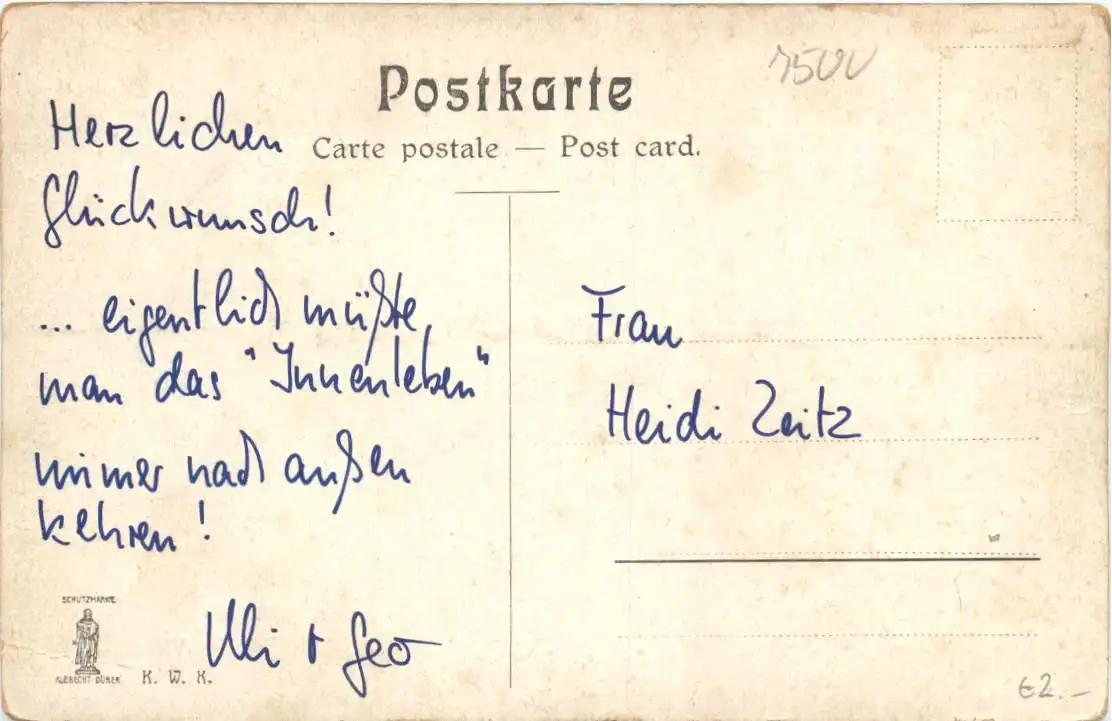 Postkarte
Carte postale — Post card.
Herzlichen
Glückwunsch!
... eigentlich müßte
man das "Innenleben"
immer nach außen
kehren!
Uli + Geo
Frau
Heidi Zeitz
SCHUTZMARKE
ALBRECHT DÜRER
K. W. K.
€2.-